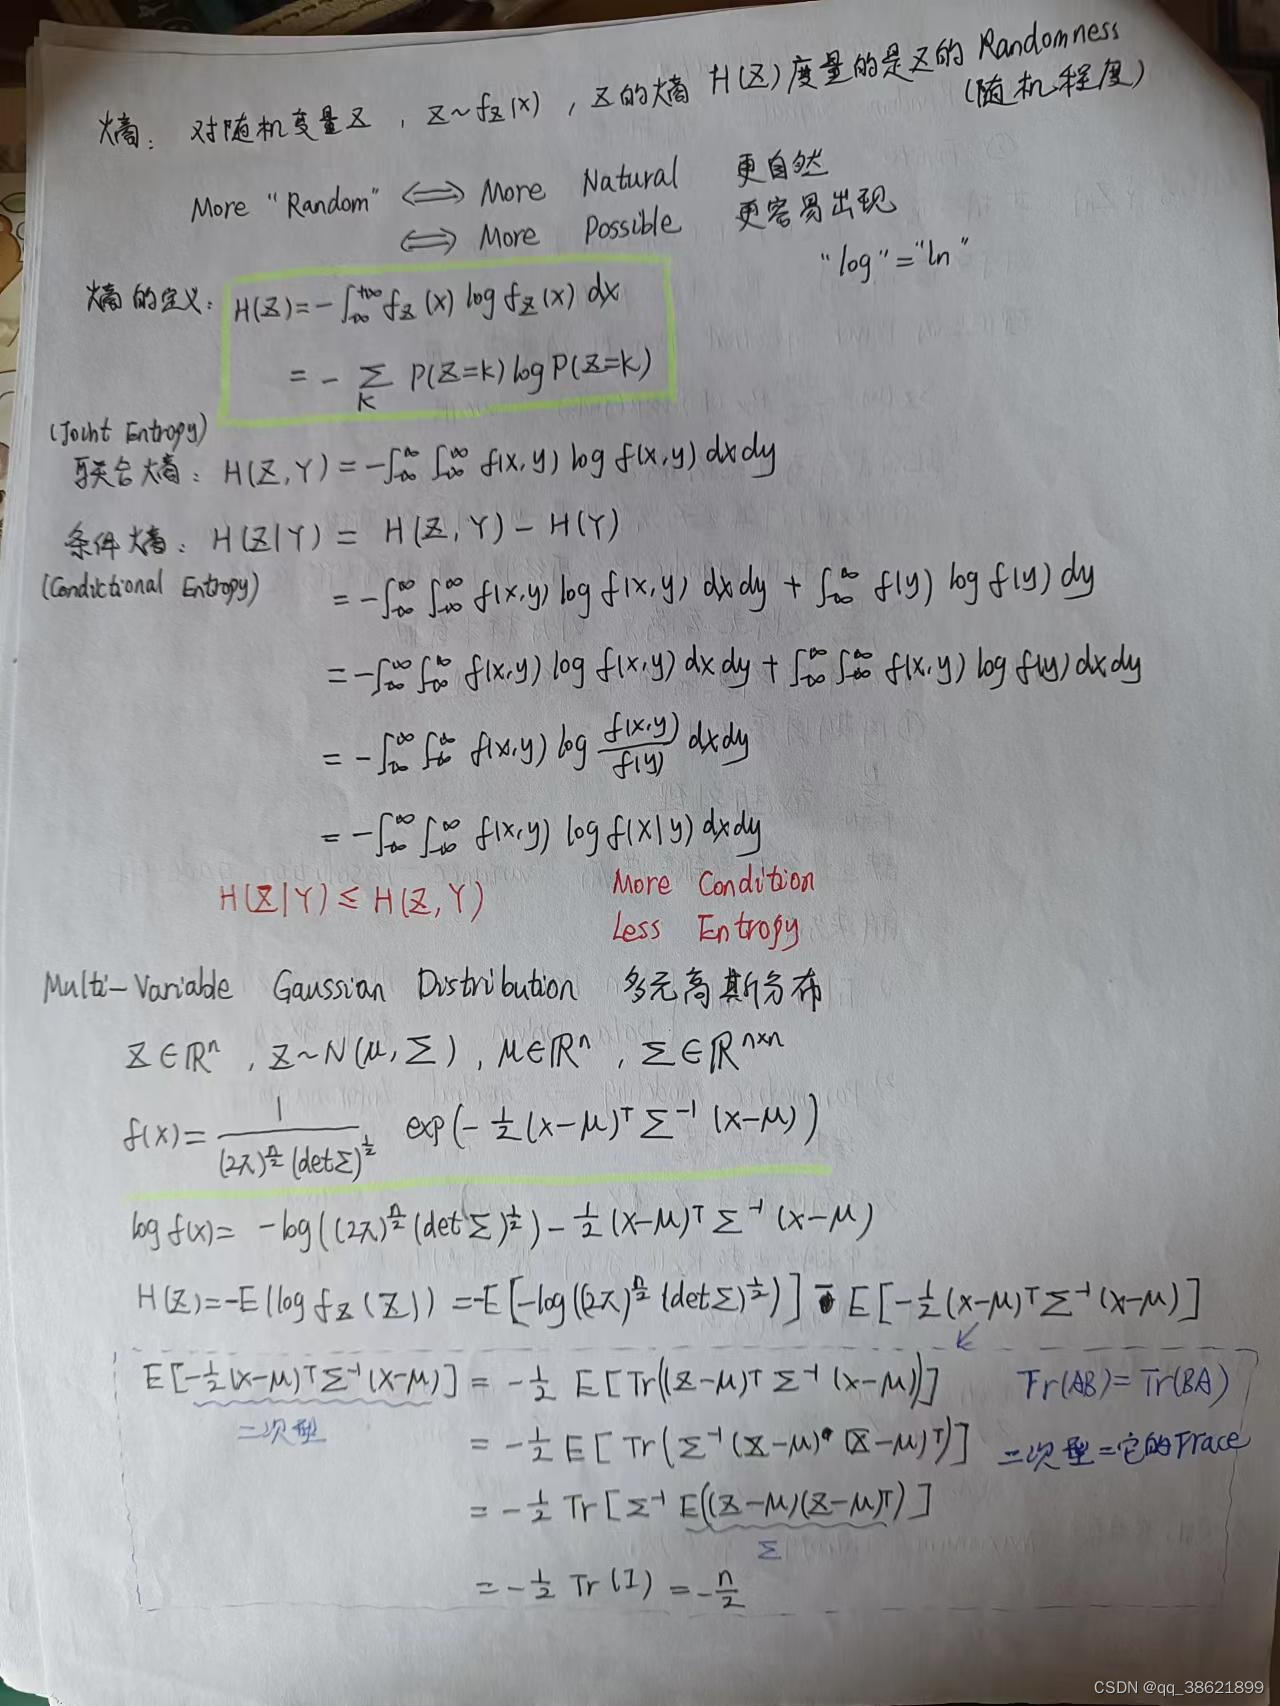 熵: 对随机变量Z , Z~f_Z(x) , Z的熵 H(Z)度量的是Z的 Randomness
(随机程度)
More “Random” ⟺ More Natural 更自然
⟺ More Possible 更容易出现
“log”=“ln”
熵的定义: H(Z)=-∫_{-∞}^{+∞} f_Z(x) log f_Z(x) dx
= - Σ_K P(Z=K) log P(Z=K)
(Joint Entropy)
联合熵: H(Z,Y) = -∫_{-∞}^{∞} ∫_{-∞}^{∞} f(x,y) log f(x,y) dxdy
条件熵: H(Z|Y) = H(Z,Y) - H(Y)
(Condictional Entropy)
= -∫_{-∞}^{∞} ∫_{-∞}^{∞} f(x,y) log f(x,y) dxdy + ∫_{-∞}^{∞} f(y) log f(y) dy
= -∫_{-∞}^{∞} ∫_{-∞}^{∞} f(x,y) log f(x,y) dxdy + ∫_{-∞}^{∞} ∫_{-∞}^{∞} f(x,y) log f(y) dxdy
= -∫_{-∞}^{∞} ∫_{-∞}^{∞} f(x,y) log \frac{f(x,y)}{f(y)} dxdy
= -∫_{-∞}^{∞} ∫_{-∞}^{∞} f(x,y) log f(x|y) dxdy
H(Z|Y) ≤ H(Z,Y) More Condition
Less Entropy
Multi-Variable Gaussian Distribution 多元高斯分布
Z∈ℝ^n , Z~N(μ,Σ) , μ∈ℝ^n , Σ∈ℝ^{n×n}
f(x)= \frac{1}{(2π)^{\frac{n}{2}} (detΣ)^{\frac{1}{2}}} exp(-\frac{1}{2}(x-μ)^T Σ^{-1} (x-μ))
log f(x)= -log((2π)^{\frac{n}{2}} (detΣ)^{\frac{1}{2}}) - \frac{1}{2}(x-μ)^T Σ^{-1} (x-μ)
H(Z)=-E(log f_Z(Z)) =-E[-log((2π)^{\frac{n}{2}} (detΣ)^{\frac{1}{2}})] - E[-\frac{1}{2}(x-μ)^T Σ^{-1} (x-μ)]
E[-\frac{1}{2}(x-μ)^T Σ^{-1} (x-μ)] = -\frac{1}{2} E[Tr((Z-μ)^T Σ^{-1} (x-μ))] Tr(AB)=Tr(BA)
二次型
= -\frac{1}{2} E[Tr(Σ^{-1} (Z-μ)(Z-μ)^T)] 二次型=它的Trace
= -\frac{1}{2} Tr[Σ^{-1} E((Z-μ)(Z-μ)^T)]
Σ
= -\frac{1}{2} Tr(I) = -\frac{n}{2}
CSDN @qq_38621899